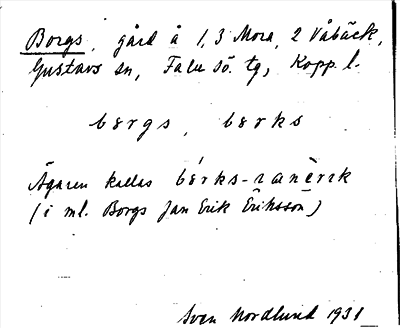 Borgs, gård å 1, 3 Mora, 2 Våbäck,
Gustavs sn, Falu sö. tg, Kopp l.
bərgs, bərks
Ägaren kallas bə́rks-ɹanè̀rɪk
(i ml. Borgs Jan Erik Eriksson)
Sven Nordlund 1931